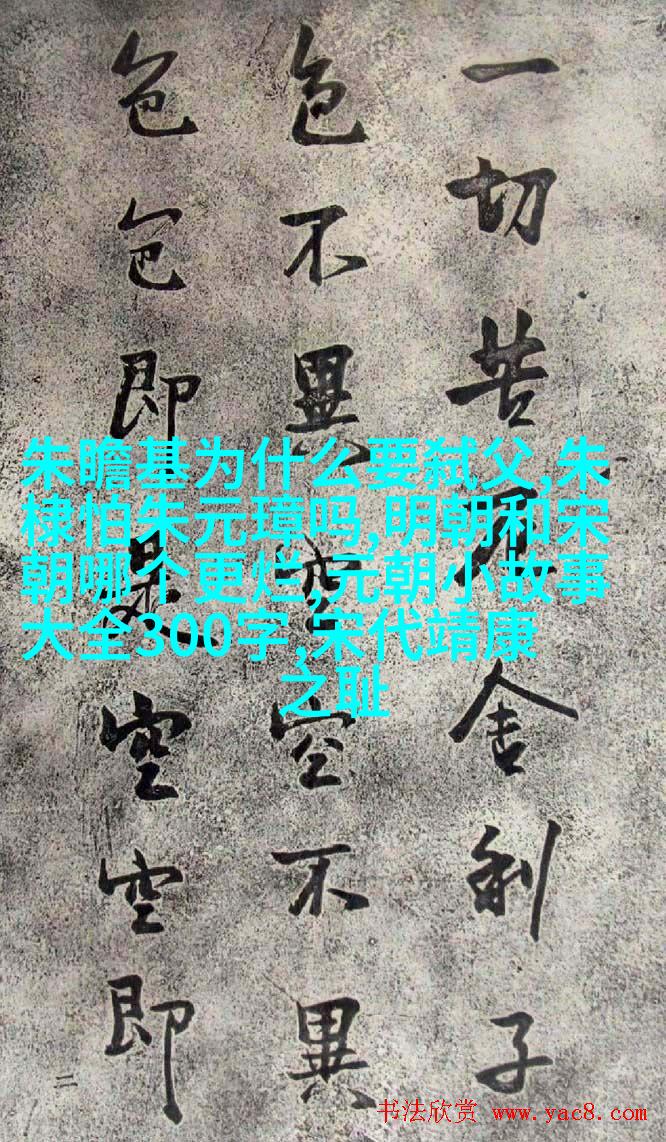 一切苦厄舍利子
色不異空空不異
色色即是空空即
二
朱瞻基为什么要弑父,朱
棣怕朱元璋吗,明朝和宋
朝哪个更烂,元朝小故事
大全300字,宋代靖康
之耻
书法欣赏 www.yac8.com